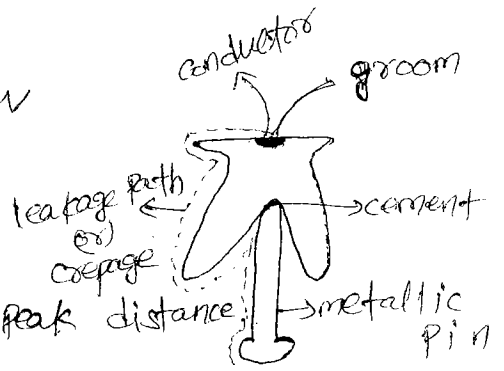 conductor
groom
leakage path
(or)
crepage
peak distance
cement
metallic
pin